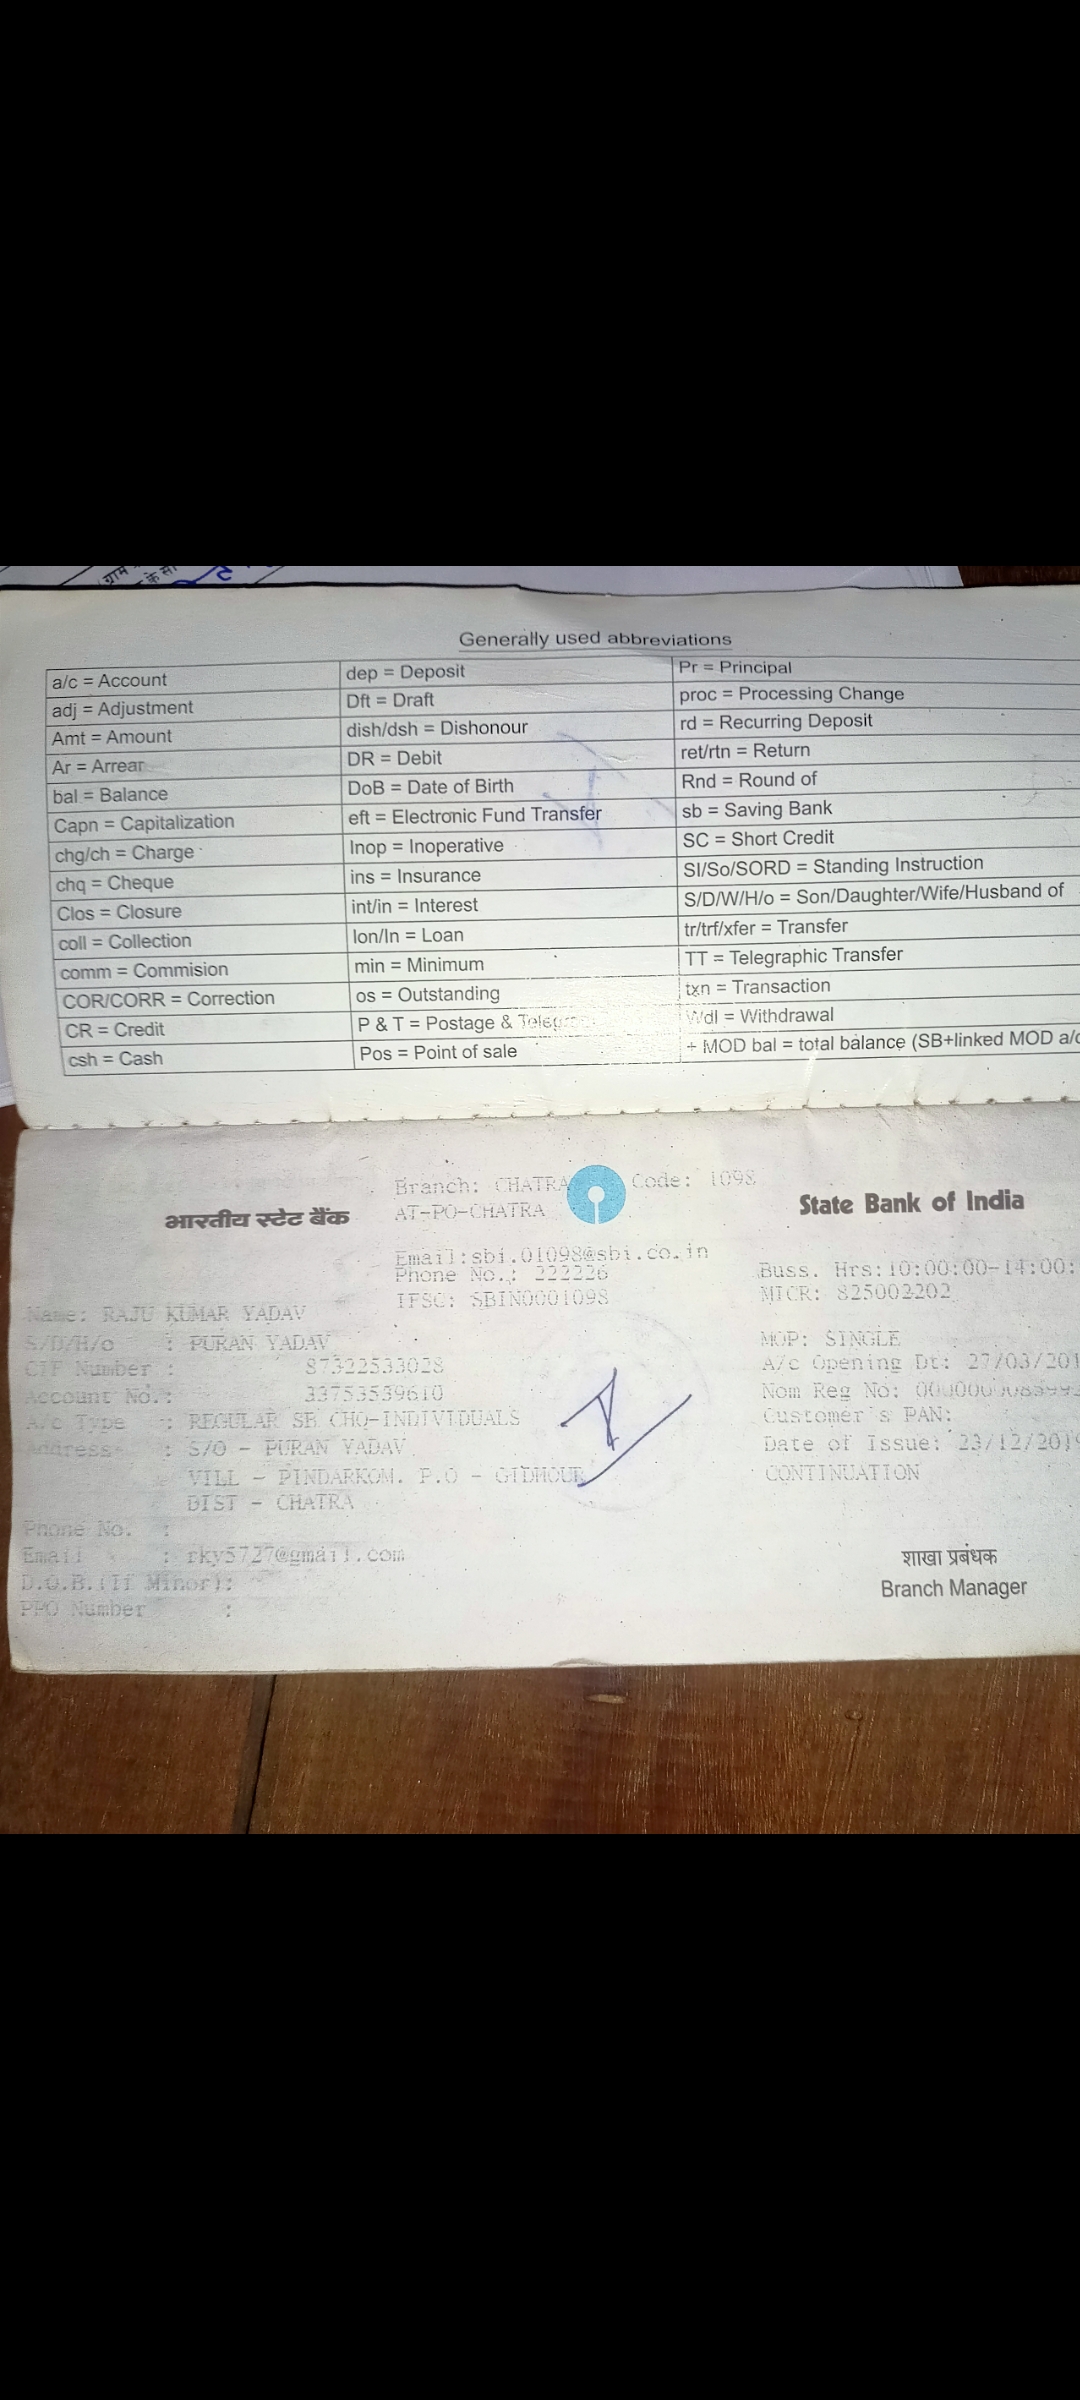 ग्राम
के सी
Generally used abbreviations
a/c = Account
adj = Adjustment
Amt = Amount
Ar = Arrear
bal = Balance
Capn = Capitalization
chg/ch = Charge
chq = Cheque
Clos = Closure
coll = Collection
comm = Commision
COR/CORR = Correction
CR = Credit
csh = Cash
dep = Deposit
Dft = Draft
dish/dsh = Dishonour
DR = Debit
DoB = Date of Birth
eft = Electronic Fund Transfer
Inop = Inoperative
ins = Insurance
int/in = Interest
lon/ln = Loan
min = Minimum
os = Outstanding
P & T = Postage &
Pos = Point of sale
Pr = Principal
proc = Processing Change
rd = Recurring Deposit
ret/rtn = Return
Rnd = Round of
sb = Saving Bank
SC = Short Credit
SI/So/SORD = Standing Instruction
S/D/W/H/o = Son/Daughter/Wife/Husband of
tr/trf/xfer = Transfer
TT = Telegraphic Transfer
txn = Transaction
Wdl = Withdrawal
+ MOD bal = total balance (SB+linked MOD a/c
भारतीय स्टेट बैंक
Branch: CHATRA Code: 1098
AT-PO-CHATRA
State Bank of India
Email:sbi.01098@sbi.co.in
Phone No.: 222226
IFSC: SBIN0001098
Buss. Hrs:10:00:00-14:00:
MICR: 825002202
Name: RAJU KUMAR YADAV
S/D/H/o : PURAN YADAV
CIF Number : 87322533028
Account No.: 33753539610
A/c Type : REGULAR SB CHQ-INDIVIDUALS
Address : S/O - PURAN YADAV
VILL - PINDARKOM. P.O - GIDHOUR
DIST - CHATRA
Phone No. :
Email : rky5727@gmail.com
D.O.B.(If Minor):
PPO Number :
MOP: SINGLE
A/c Opening Dt: 27/03/201
Nom Reg No:
Customer's PAN:
Date of Issue: 23/12/2019
CONTINUATION
शाखा प्रबंधक
Branch Manager